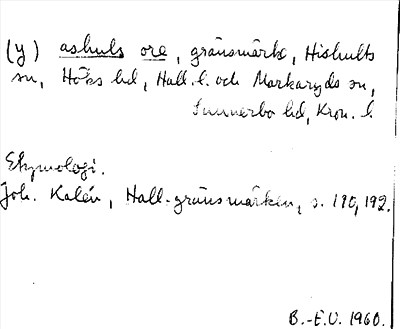 (y) ashults ore, gränsmärke, Hishults
sn, Höks hd, Hall. l. och Markaryds sn,
Sunnerbo hd, Kron. l.
Etymologi.
Joh. Kalén, Hall. gränsmärken, s. 190, 192.
B.-E.U. 1960.